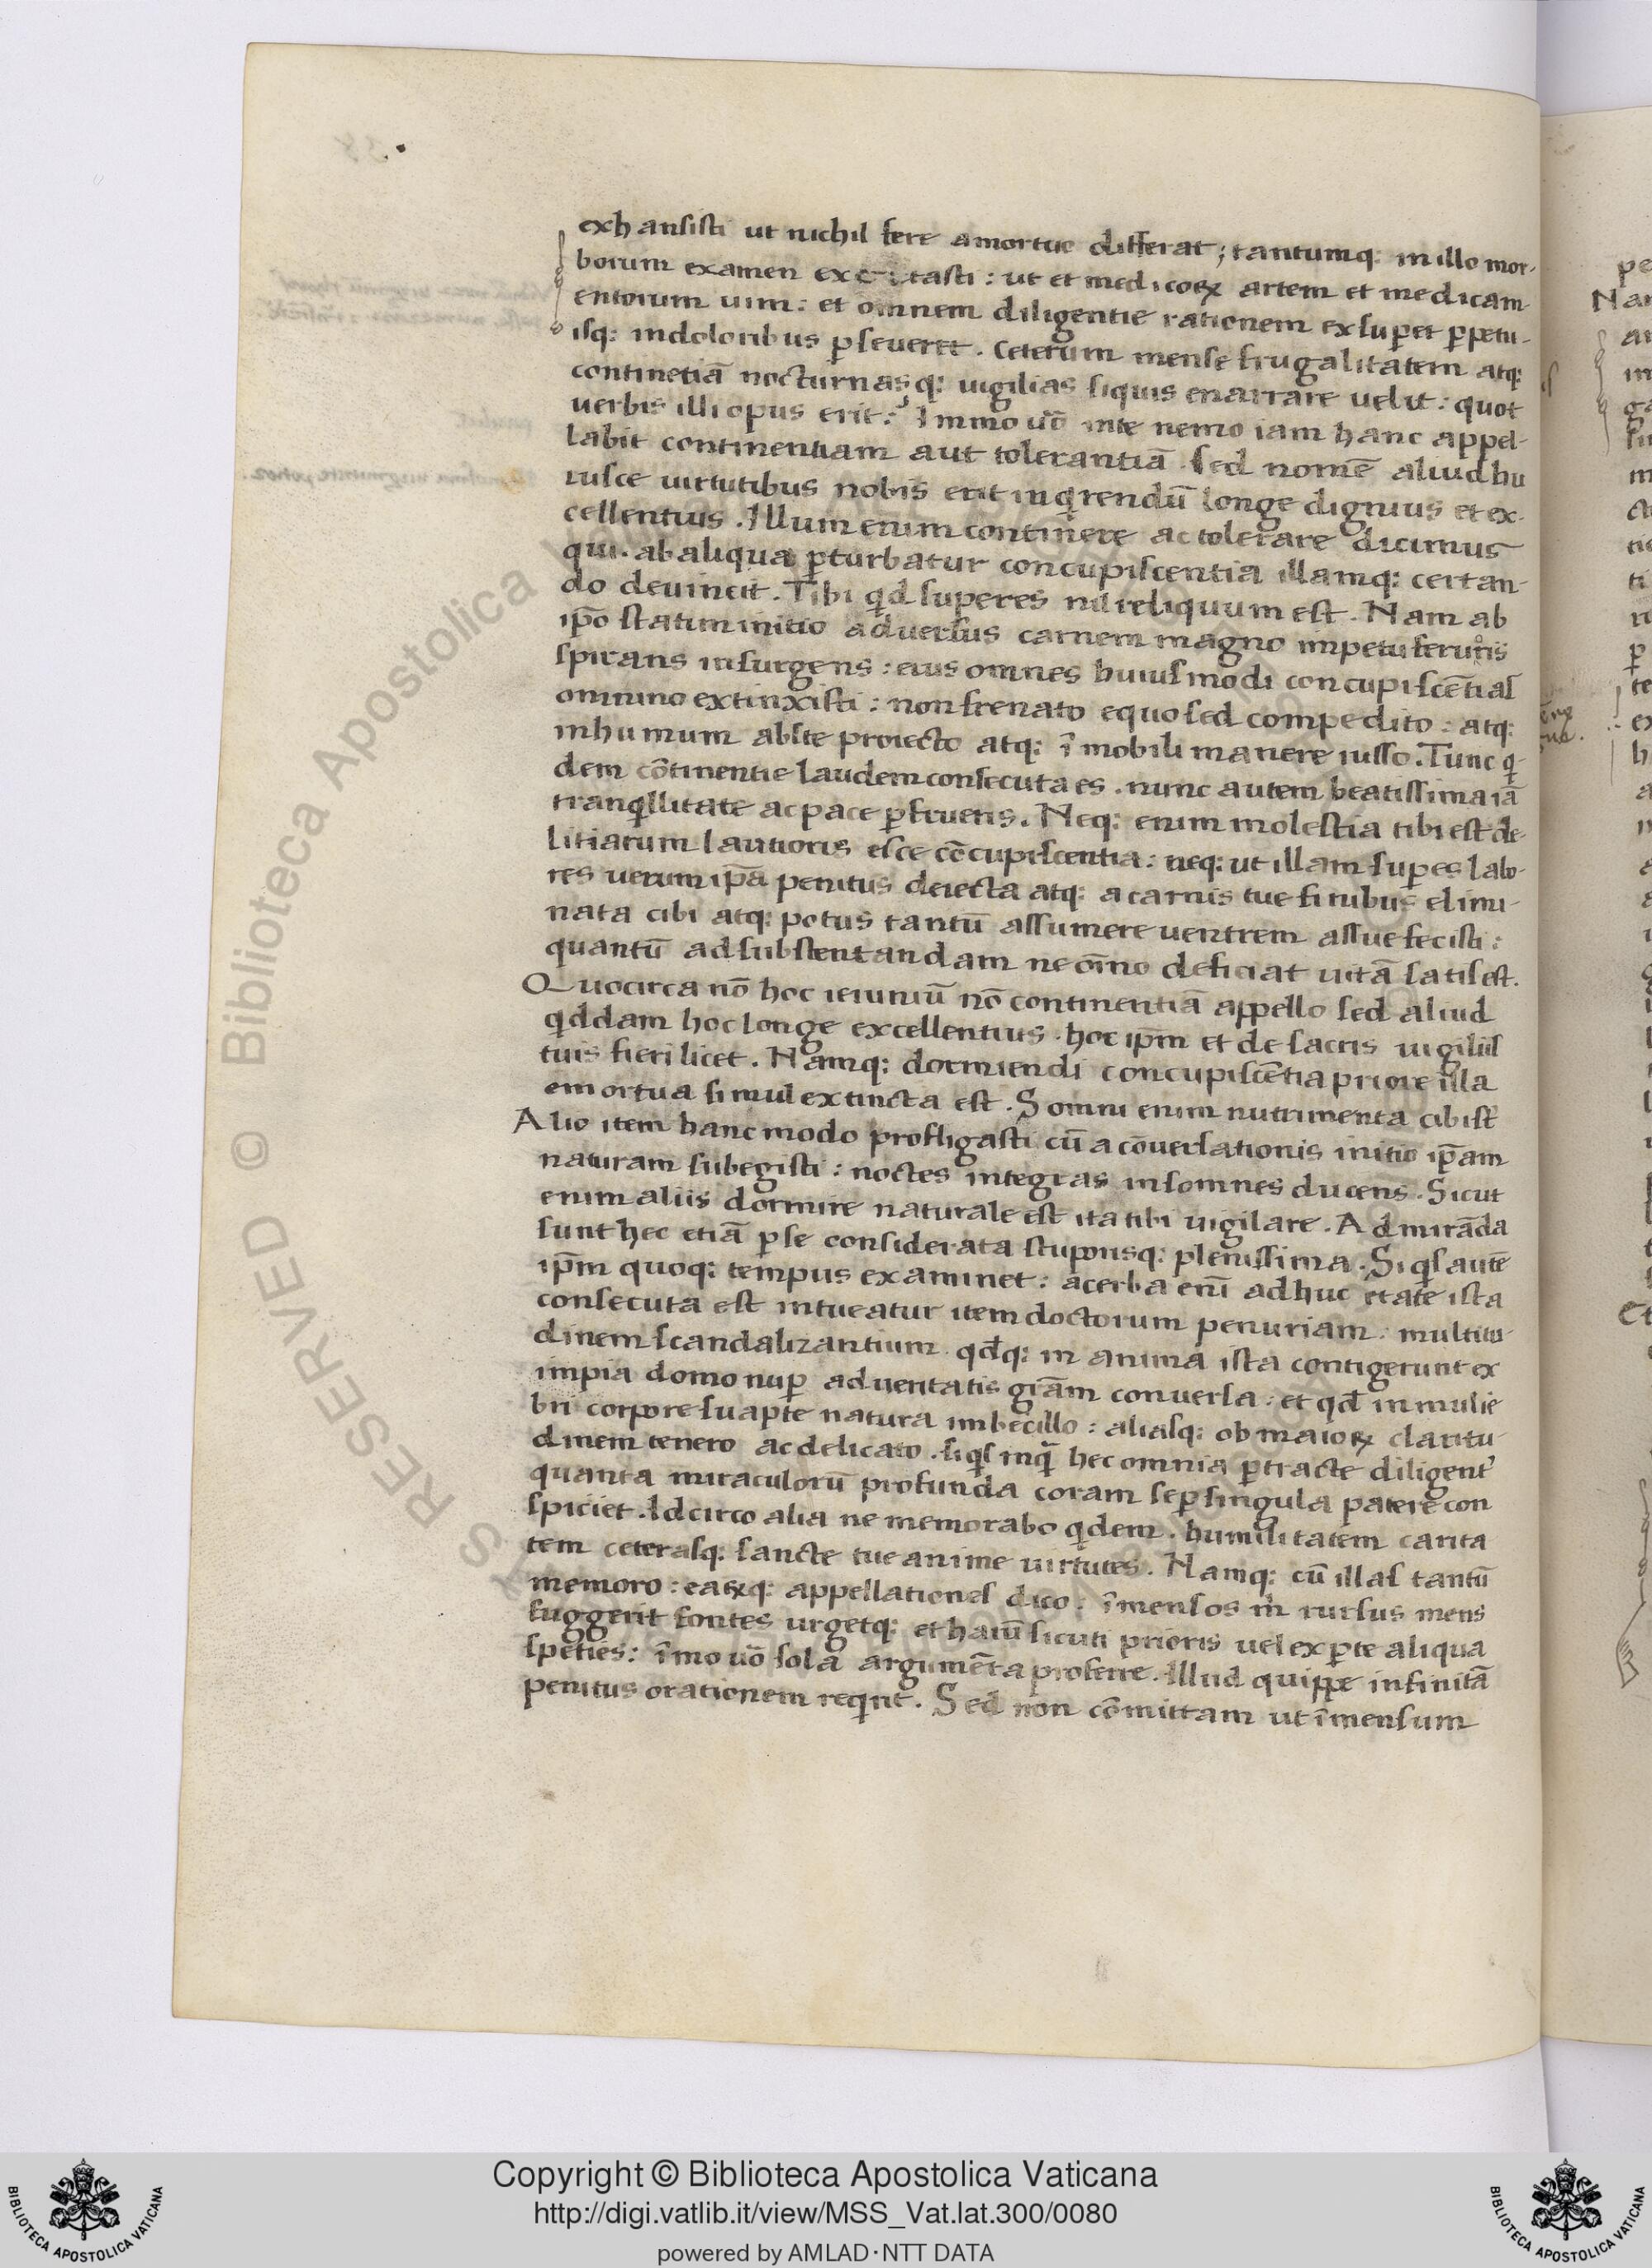 exhausisti ut nichil fere amortuo differat; tantumq: in illo mor-
borum examen excitasti: ut et medicoꝝ artem et medicam
entorum uim: et omnem diligentie rationem exsuꝑet ꝑpetu-
isq: indoloribus ꝑseueret. Ceterum mense frugalitatem atq:
continetiā nocturnasq: uigilias siquis enarrare uelit: quot
uerbis illi opus erit? Immo uō inte nemo iam hanc appel-
labit continentiam aut tolerantiā. sed nomē aliud hu
iusce uirtutibus nobis erit inqrendū longe dignius et ex-
cellentius. Illum enim continere ac tolerare dicimus
qui. ab aliqua ꝑturbatur concupiscentia illamq: certan-
do deuincit. Tibi qd superes nil reliquum est. Nam ab
ip̄o statim initio aduersus carnem magno impetu feruoris
spirans insurgens: eius omnes huiusmodi concupiscētias
omnino extinxisti: non frenato equo sed compedito: atq:
inhumum abste proiecto atq: īmobili manere iusso. Tunc q-
dem cōtinentie laudem consecuta es. nunc autem beatissima iā
tranqllitate ac pace ꝑfrueris. Neq: enim molestia tibi est de-
litiarum lautioris esce cōcupiscentia: neq: ut illam suꝑes labo-
res uerum ip̄a penitus deiecta atq: a carnis tue finibus elimi-
nata cibi atq: potus tantū assumere uentrem assuefecisti:
quantū ad substentandam ne oīno deficiat uitā satis est.
Quocirca nō hoc ieiuniū nō continentiā appello sed aliud
qddam hoc longe excellentius. hoc ip̄m et de sacris uigiliis
tuis fieri licet. Namq: dormiendi concupiscētia priore illa
emortua simul extincta est. Somni enim nutrimenta cibi st̄
Alio item hanc modo profligasti cū a cōuersationis initio ip̄am
naturam subegisti: noctes integras insomnes ducens. Sicut
enim aliis dormire naturale est ita tibi uigilare. Admirāda
sunt hec etiā ꝑse considerata stuporisq: plenissima. Si qs autē
ip̄m quoq: tempus examinet: acerba enī adhuc etate ista
consecuta est intueatur item doctorum penuriam: multitu-
dinem scandalizantium. qd̄q: in anima ista contigerunt ex
impia domo nuꝑ ad ueritatis grām conuersa: et qd̄ in mulie
bri corpore suapte natura imbecillo: aliasq: ob maioꝝ claritu-
dinem tenero ac delicato. siqs inq̄ hec omnia ꝑtracte diligent'
quanta miraculorū profunda coram seꝑ singula patere con
spiciet. Idcirco alia ne memorabo qdem. humilitatem carita
tem ceterasq: sancte tue anime uirtutes. Namq: cū illas tantū
memoro: eaꝝq: appellationes dico: īmensos m̄ rursus mens
suggerit fontes urgetq: et harū sicuti prioris uel exꝑte aliqua
speties: īmo uō sola argumēta proferre. Illud quippe infinitā
penitus orationem reqrit. Sed non cōmittam ut īmensum